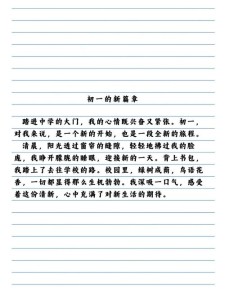 初一的新篇章
踏进中学的大门，我的心情既兴奋又紧张。初一，
对我来说，是一个新的开始，也是一段全新的旅程。
清晨，阳光透过窗帘的缝隙，轻轻地拂过我的脸
庞，我睁开朦胧的睡眼，迎接新的一天。背上书包，
我踏上了去往学校的路。校园里，绿树成荫，鸟语花
香，一切都显得那么生机勃勃。我深吸一口气，感受
着这份清新，心中充满了对新生活的期待。